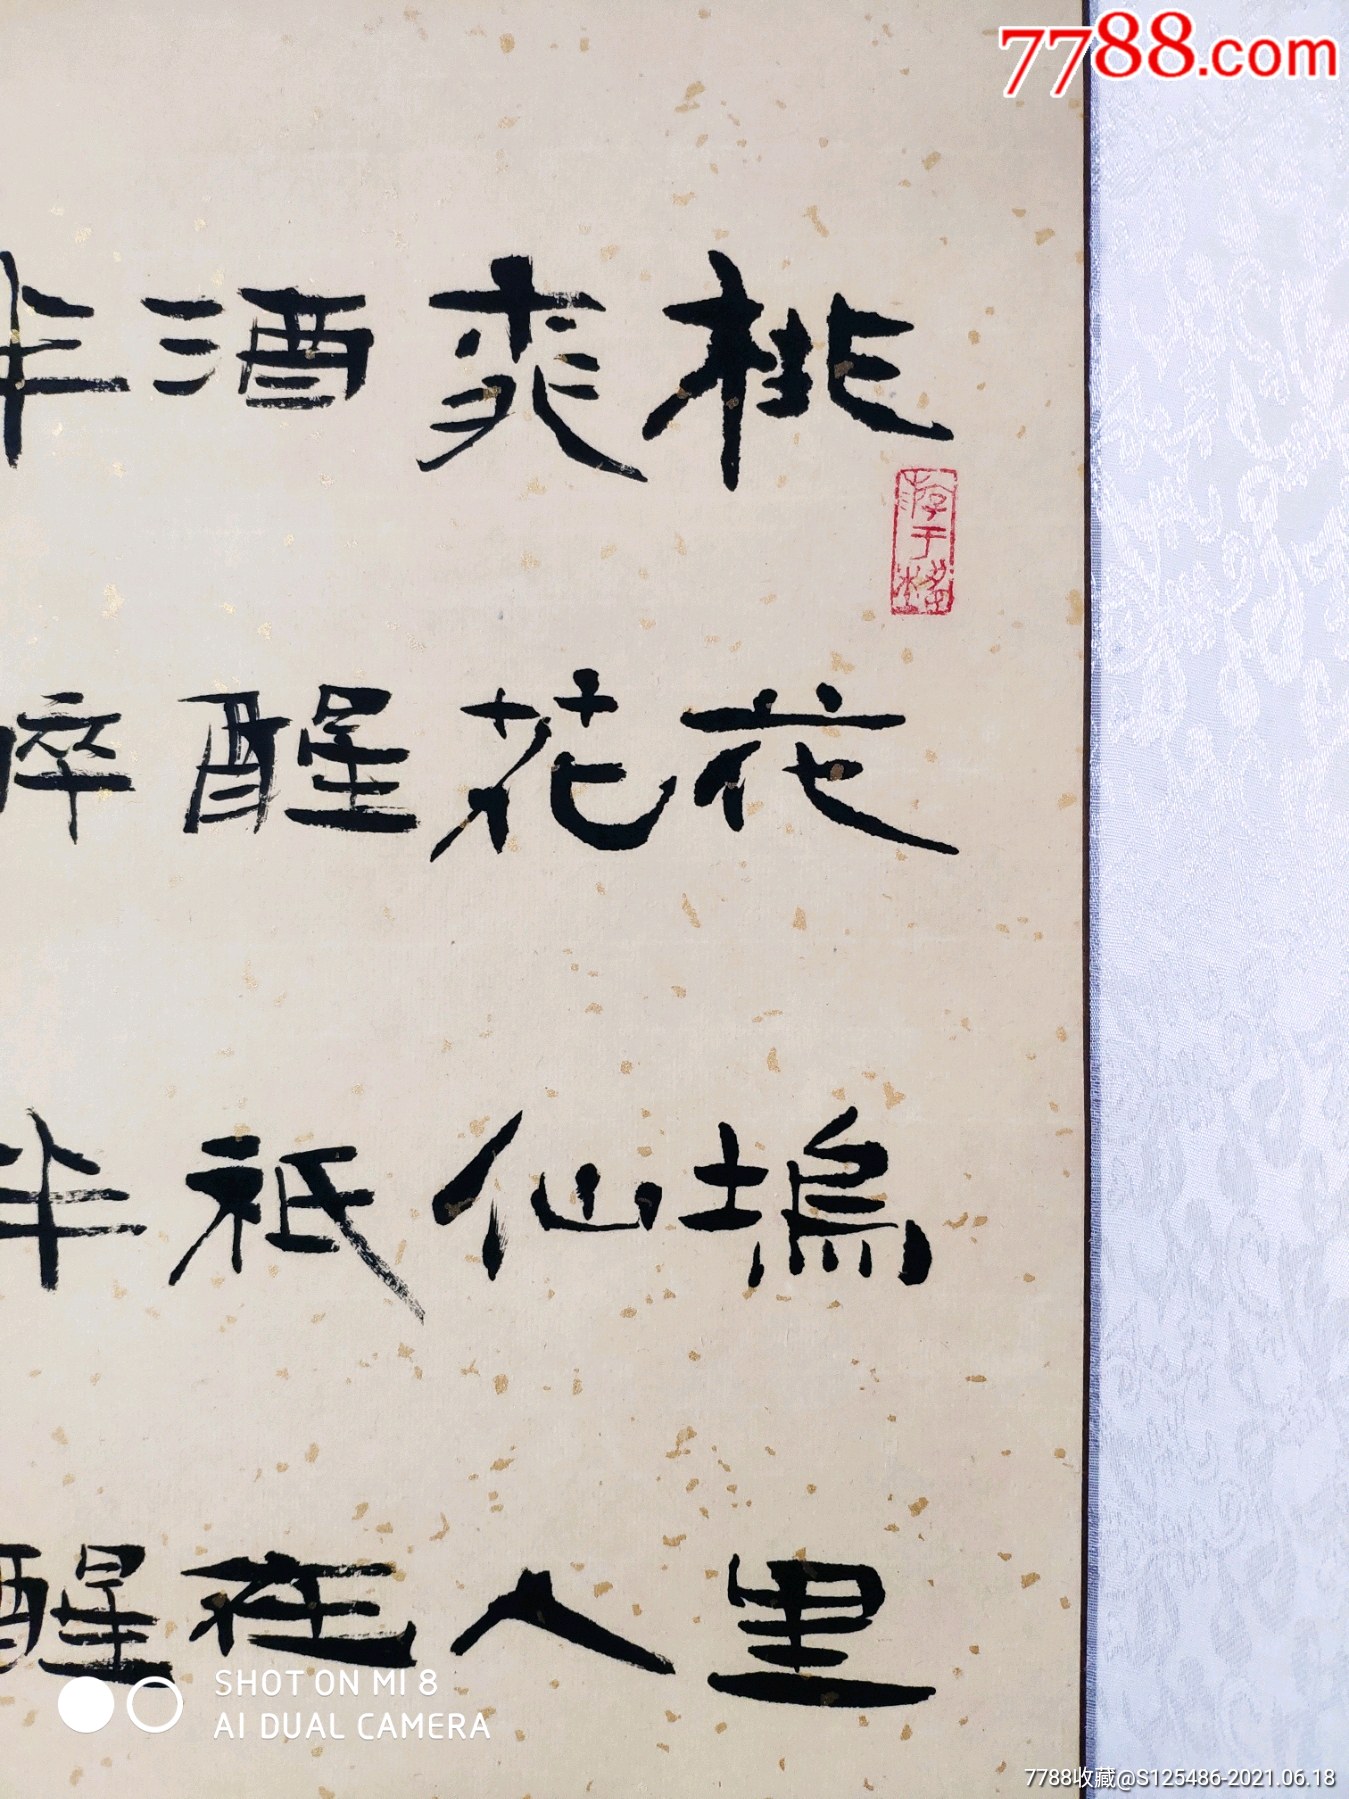 7788.com
桃花塢里
桃花仙人
酒醒祇在
半醉半醒
游于藝
SHOT ON MI 8
AI DUAL CAMERA
7788收藏@S125486-2021.06.18